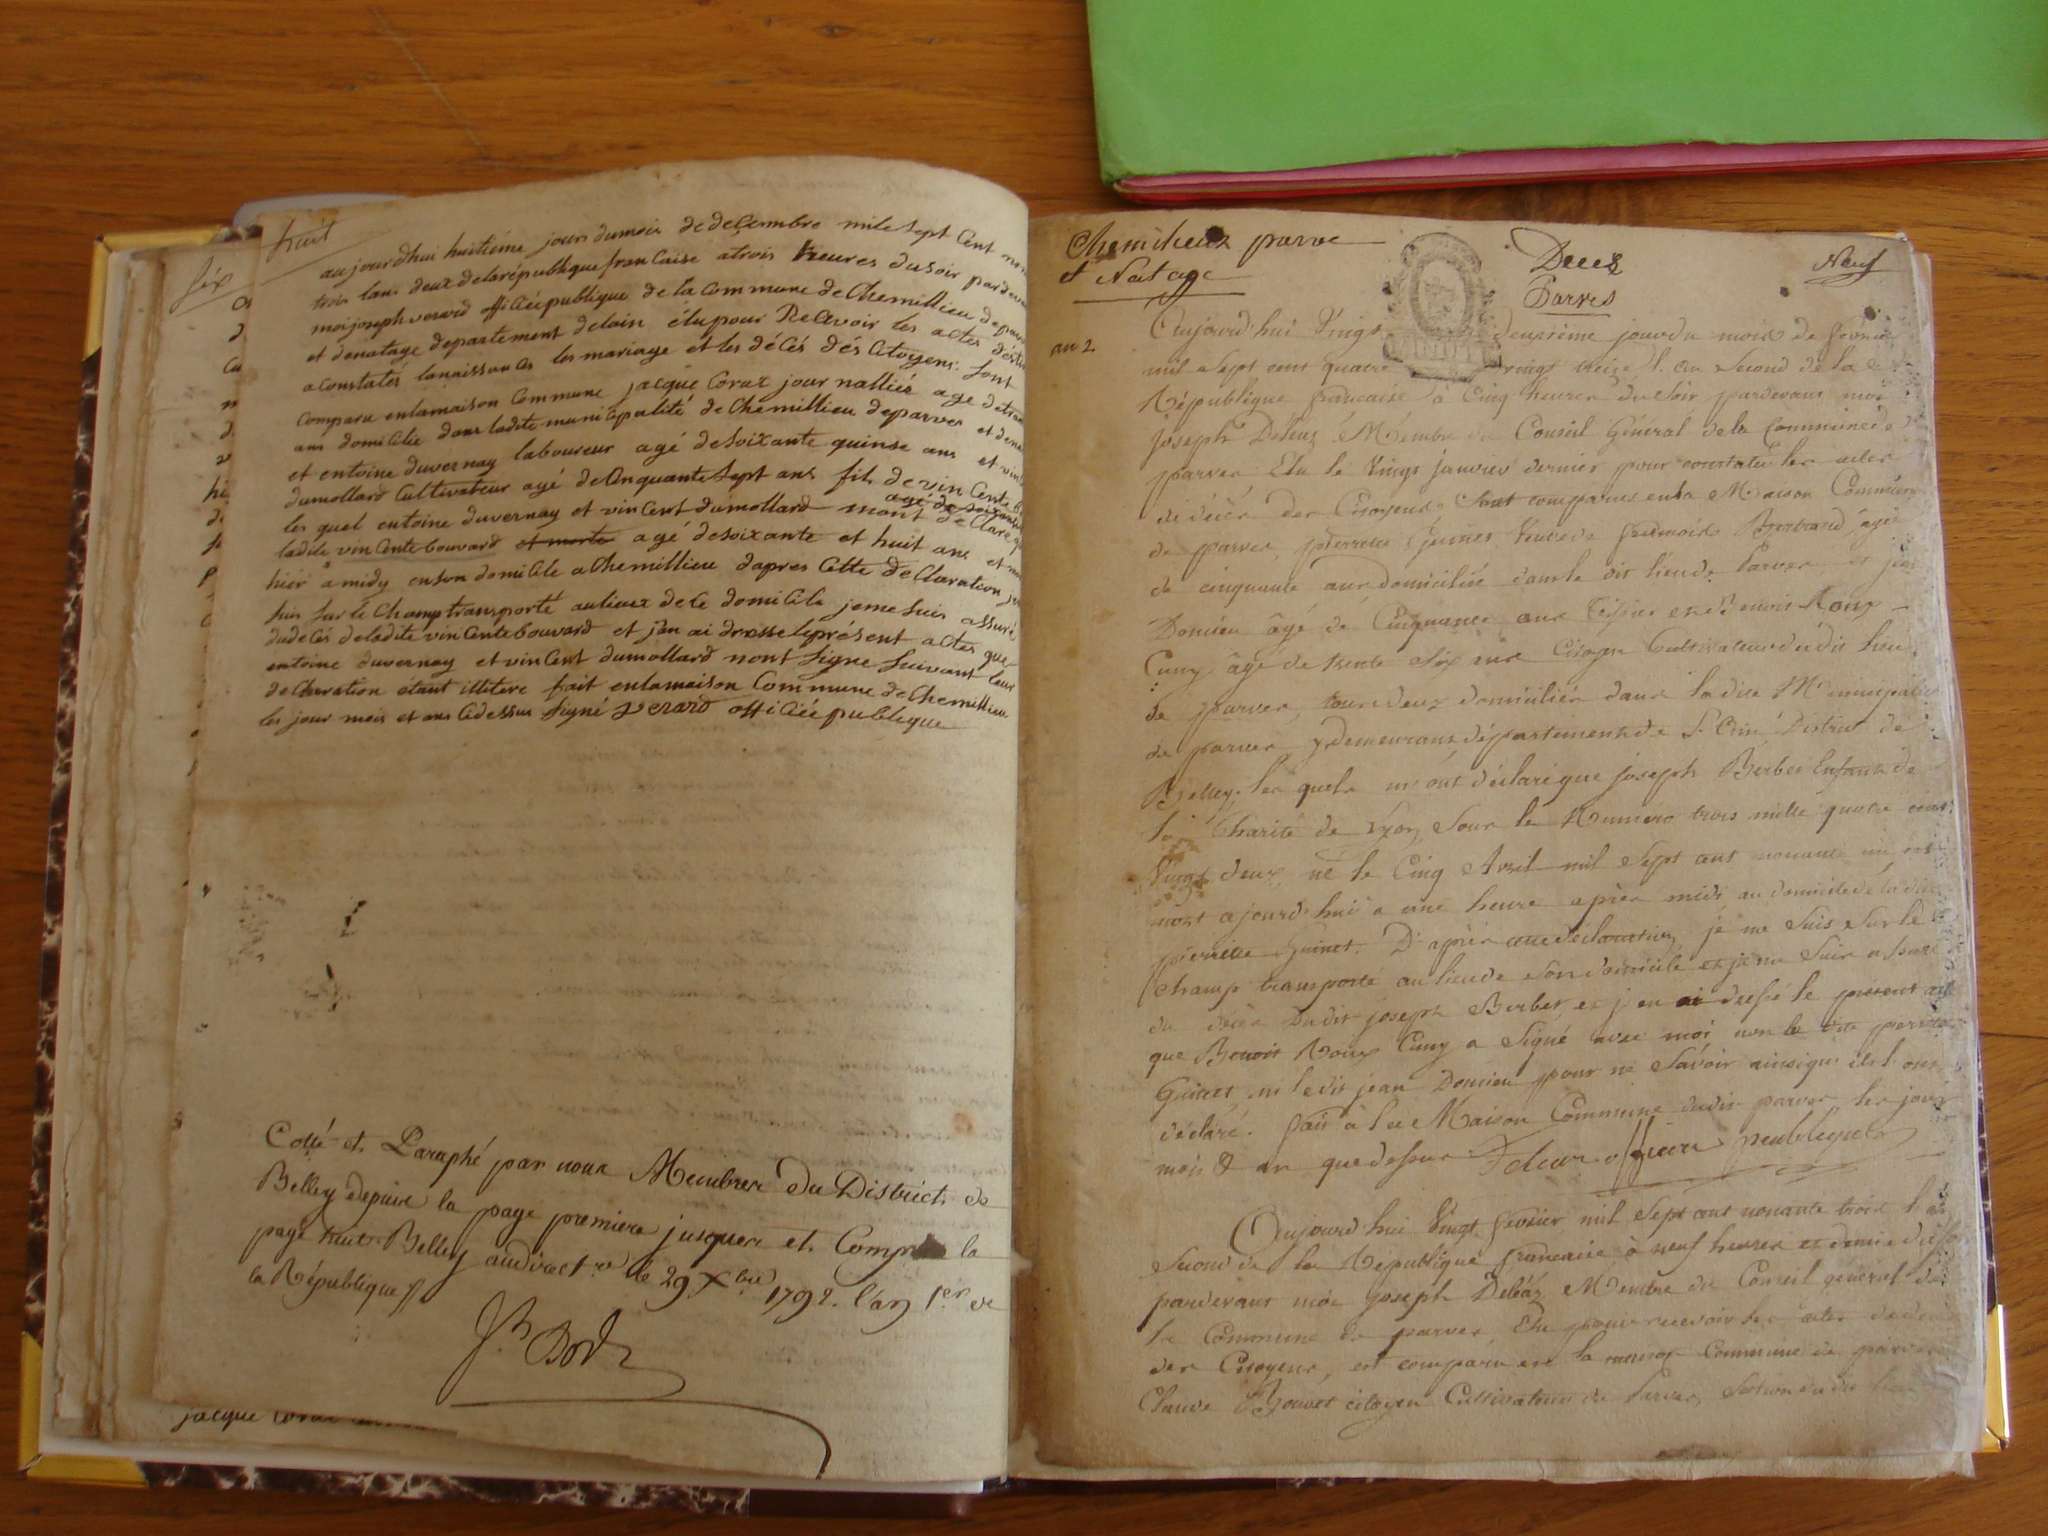 huit
aujourdhui huitiéme jours dumois de deçembre mile sept Cent
trois lans deux delarépublique francaise atrois heures dusoir pardevan
moi joseph verard officiée publique de la commune de Chemillieu deparve
et denatage departement delain élu pour Recevoir les actes destin
a constatés lanaissances les mariage et les décés dés Citoyens. sont
comparu enlamaison Commune jacque Coraz journalliée age detrante
ans domicilié dans ladite municipalité de Chemillieu deparves et dena
et entoine duvernay laboureur agé desoixante quinse ans et vincent
dumollard Cultivateur agé deCinquante sept ans fils de vincente
agé de soixante
les quel entoine duvernay et vincent dumollard mont déClaré que
ladite vincente bouvard et morte agé desoixante et huit ans et
hiér a midy enson domicile a Chemillieu dapres Cette deClaration je me
suis sur le Champ transporté aulieux dele domicile jeme suis assuré
dudeces deladite vincente bouvard et jan ai drasse leprésent actes que
entoine duvernay et vincent dumollard nont signe suivant leur
deClaration étant illitere frait enlamaison Commune de Chemillieu
les jour mois et ans Cidessus signé verard officiée publique
Cotté et Paraphé par nous Membres du District de
Belley depuis la page premiere jusques et Compris la
page huit Belley au direct.re le 29 Xbre 1792. l'an 1er de
la République
six
jacque Coraz
Chemilieux parve
et Natage
Deces
Parves
Neuf
an 2
Aujourd'hui Vingt deuxième jour du mois de fevrier
mil Sept cent quatre vingt treize l'an Second de la
République francaise à Cinq heures du Soir pardevant moi
Joseph Deleaz Membre du Conseil Général de la Commune de
parves, Elu le Vingt janvier dernier pour constater les actes
de décès des Citoyens Sont comparus en la Maison Commune
de parves, pierrette guinet Veuve de Bertrand, agée
de cinquante ans domiciliée dans le dit lieu de Parves et jean
Domieu âgé de Cinquante ans Tissier et Benoit Roux
Cuny âgé de trente Six ans Citoyen Cultivateur du dit lieu
de parves, tous deux domiciliés dans la dite Municipalité
de parves y demeurans, département de L'ain, District de
Belley; les quels m'ont déclaré que joseph Berbet Enfant de
la Charité de Lyon, Sous le Numero trois mille quatre cent
Vingt deux, né le Cinq Avril mil Sept cent nonante un est
mort ajourd'hui a une heure après midi au domicile de la dite
pierrette Guinet. D'après cette déclaration, je me Suis Sur le
Champ transporté au lieu de Son domicile et je me Suis assuré
du décès Dudit joseph Berbet, et j'en ai dressé le present acte
que Benoit Roux Cuny a Signé avec moi, non la dite pierrette
Guinet, ni ledit jean Domieu pour ne Savoir ainsi qu'ils l'ont
déclaré. fait à la Maison Commune dudit parves, les jour
mois & an que dessus Deleaz officier publique
Aujourd'hui Vingt fevrier mil Sept cent nonante trois l'an
Second de la République francaise à neuf heures et demie du
pardevant moi joseph Deléaz Membre du Conseil général de
la Commune de parves, Elu pour recevoir les actes de décès
des Citoyens, est comparu en la maison Commune de parves
Claude Bouvet citoyen Cultivateur de Parves,